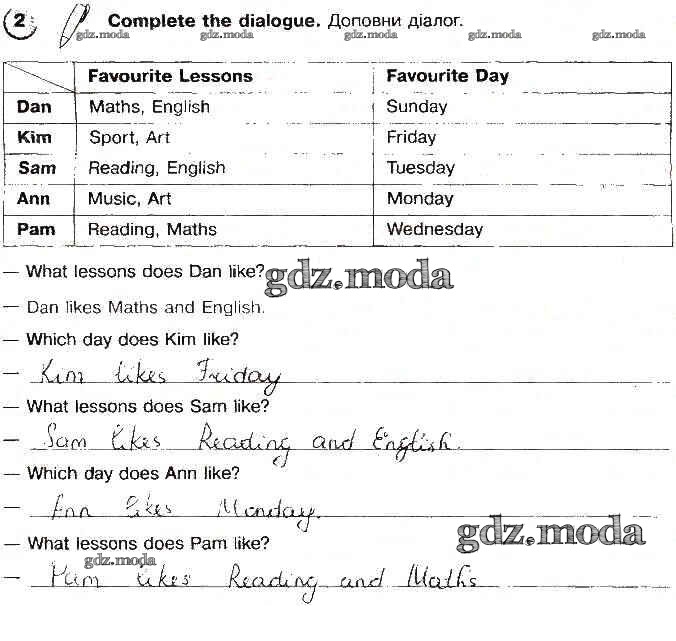 2 Complete the dialogue. Доповни діалог.
gdz.moda gdz.moda gdz.moda gdz.moda gdz.moda
Favourite Lessons Favourite Day
Dan Maths, English Sunday
Kim Sport, Art Friday
Sam Reading, English Tuesday
Ann Music, Art Monday
Pam Reading, Maths Wednesday
— What lessons does Dan like?
gdz.moda
— Dan likes Maths and English.
— Which day does Kim like?
— Kim likes Friday
— What lessons does Sam like?
— Sam likes Reading and English.
— Which day does Ann like?
— Ann likes Monday.
gdz.moda
— What lessons does Pam like?
gdz.moda
— Pam likes Reading and Maths